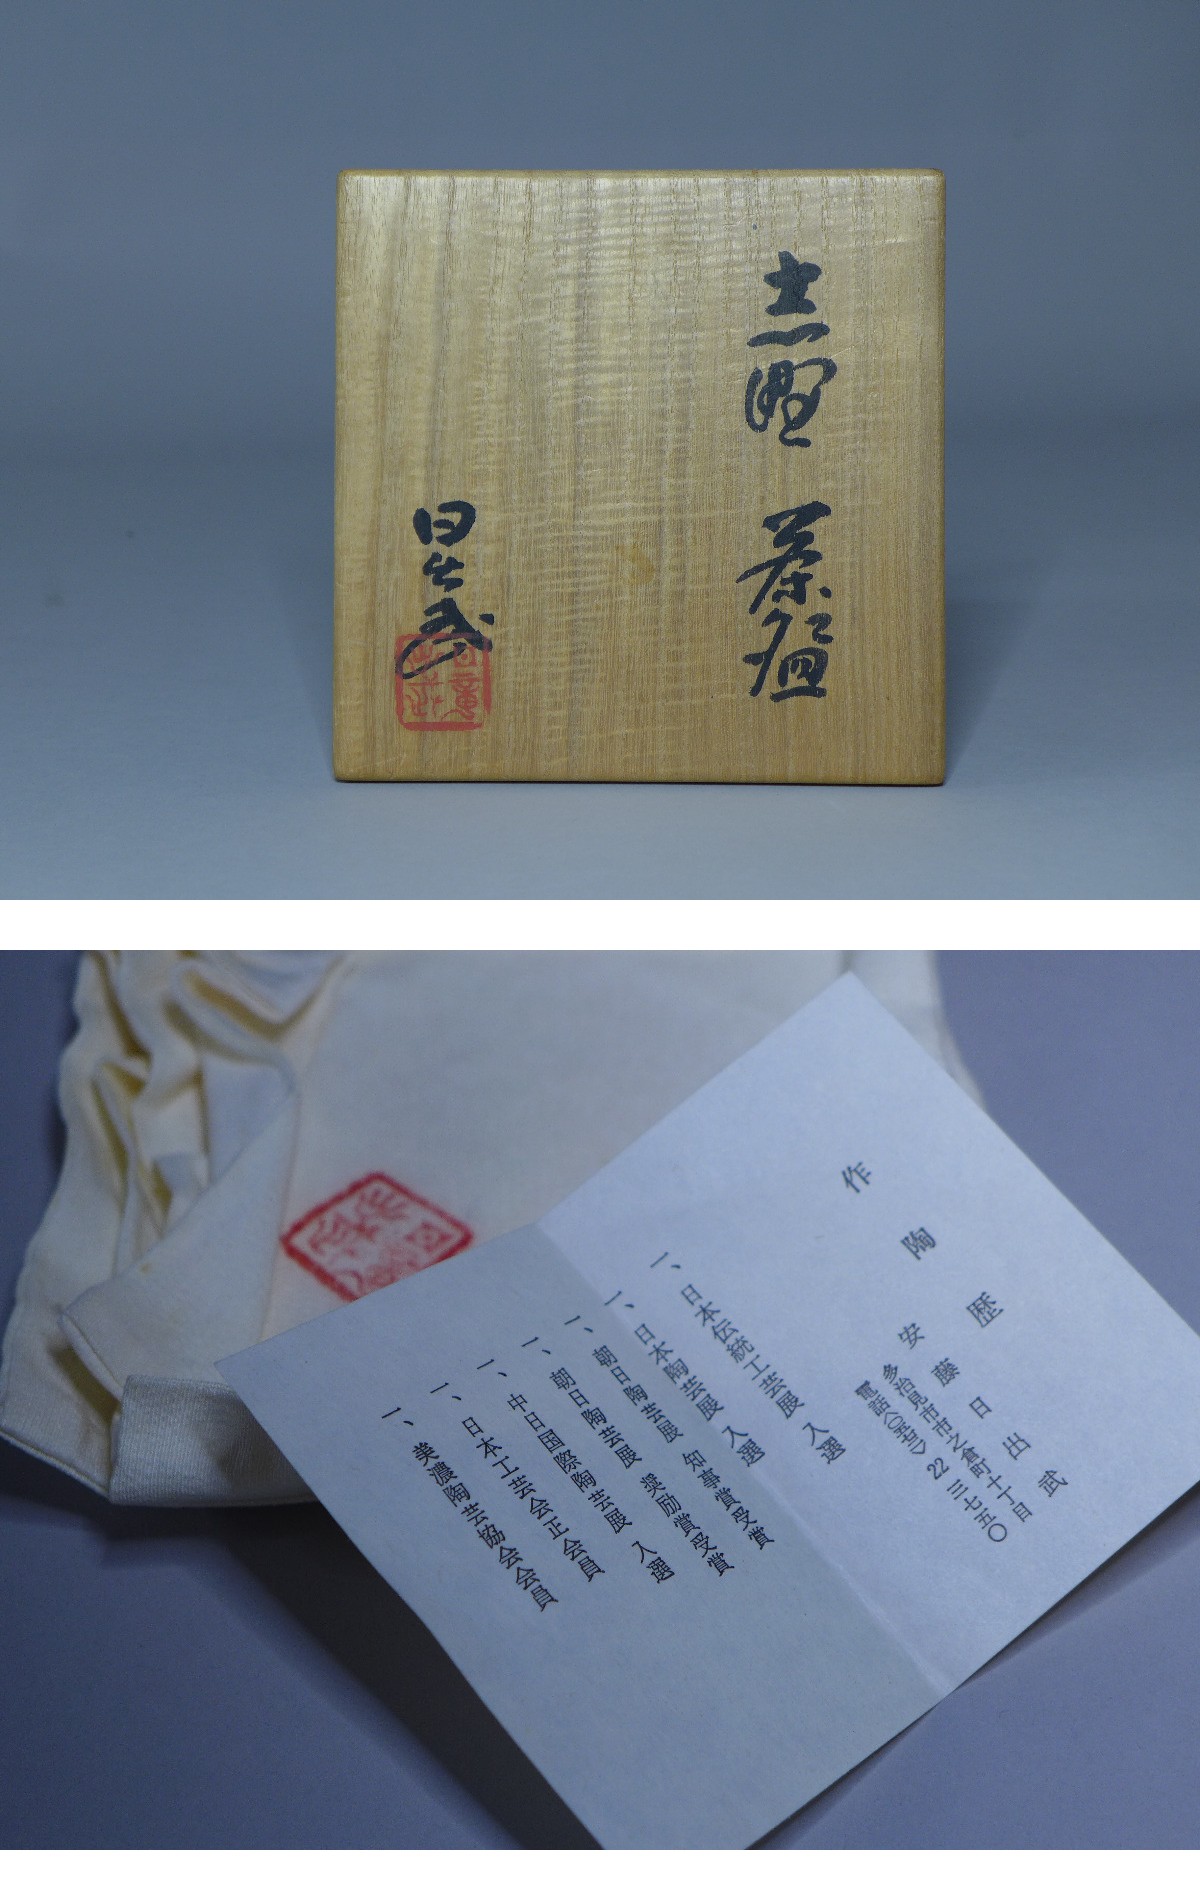 志野 茶盌
日出武
作陶歴
安藤日出武
多治見市市之倉町十丁目
電話〈〇五七二〉22 三七五〇
一、日本伝統工芸展 入選
一、日本陶芸展 入選
一、朝日陶芸展 知事賞受賞
一、朝日陶芸展 奨励賞受賞
一、中日国際陶芸展 入選
一、日本工芸会正会員
一、美濃陶芸協会会員